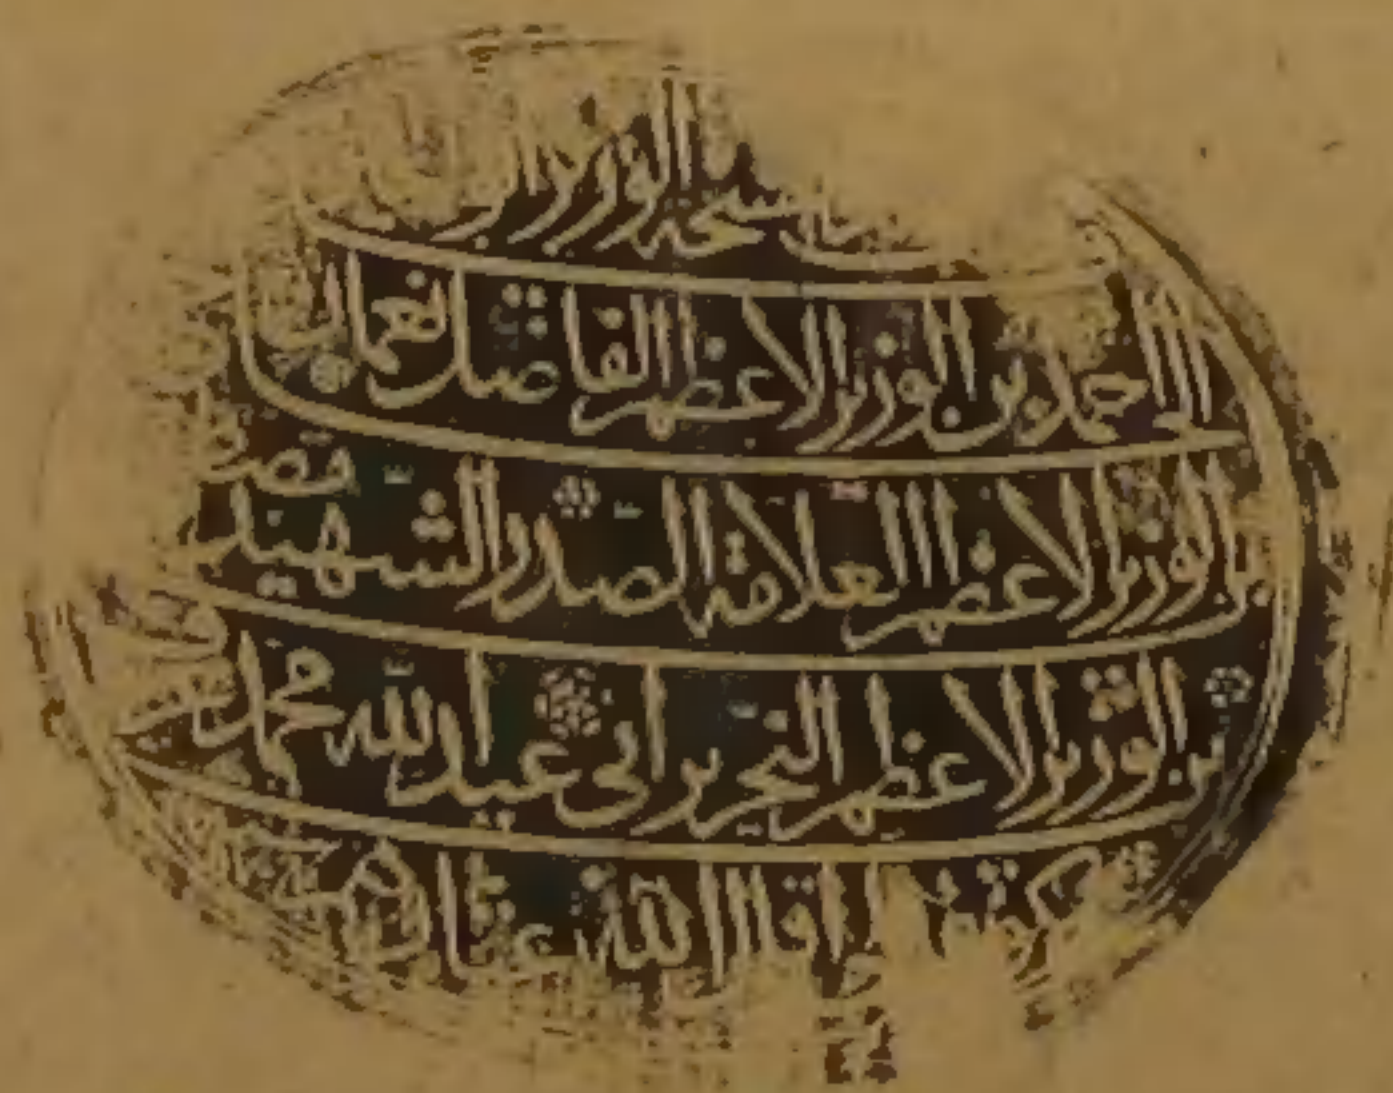 النسخة الوزير
الحاج احمد بن الوزير الاعظم الفاضل نعمان
بن الوزير الاعظم العلامة الصدر الشهيد مصطفى
بن الوزير الاعظم النحرير ابي عبد الله محمد عرف
اقال الله عثارهم